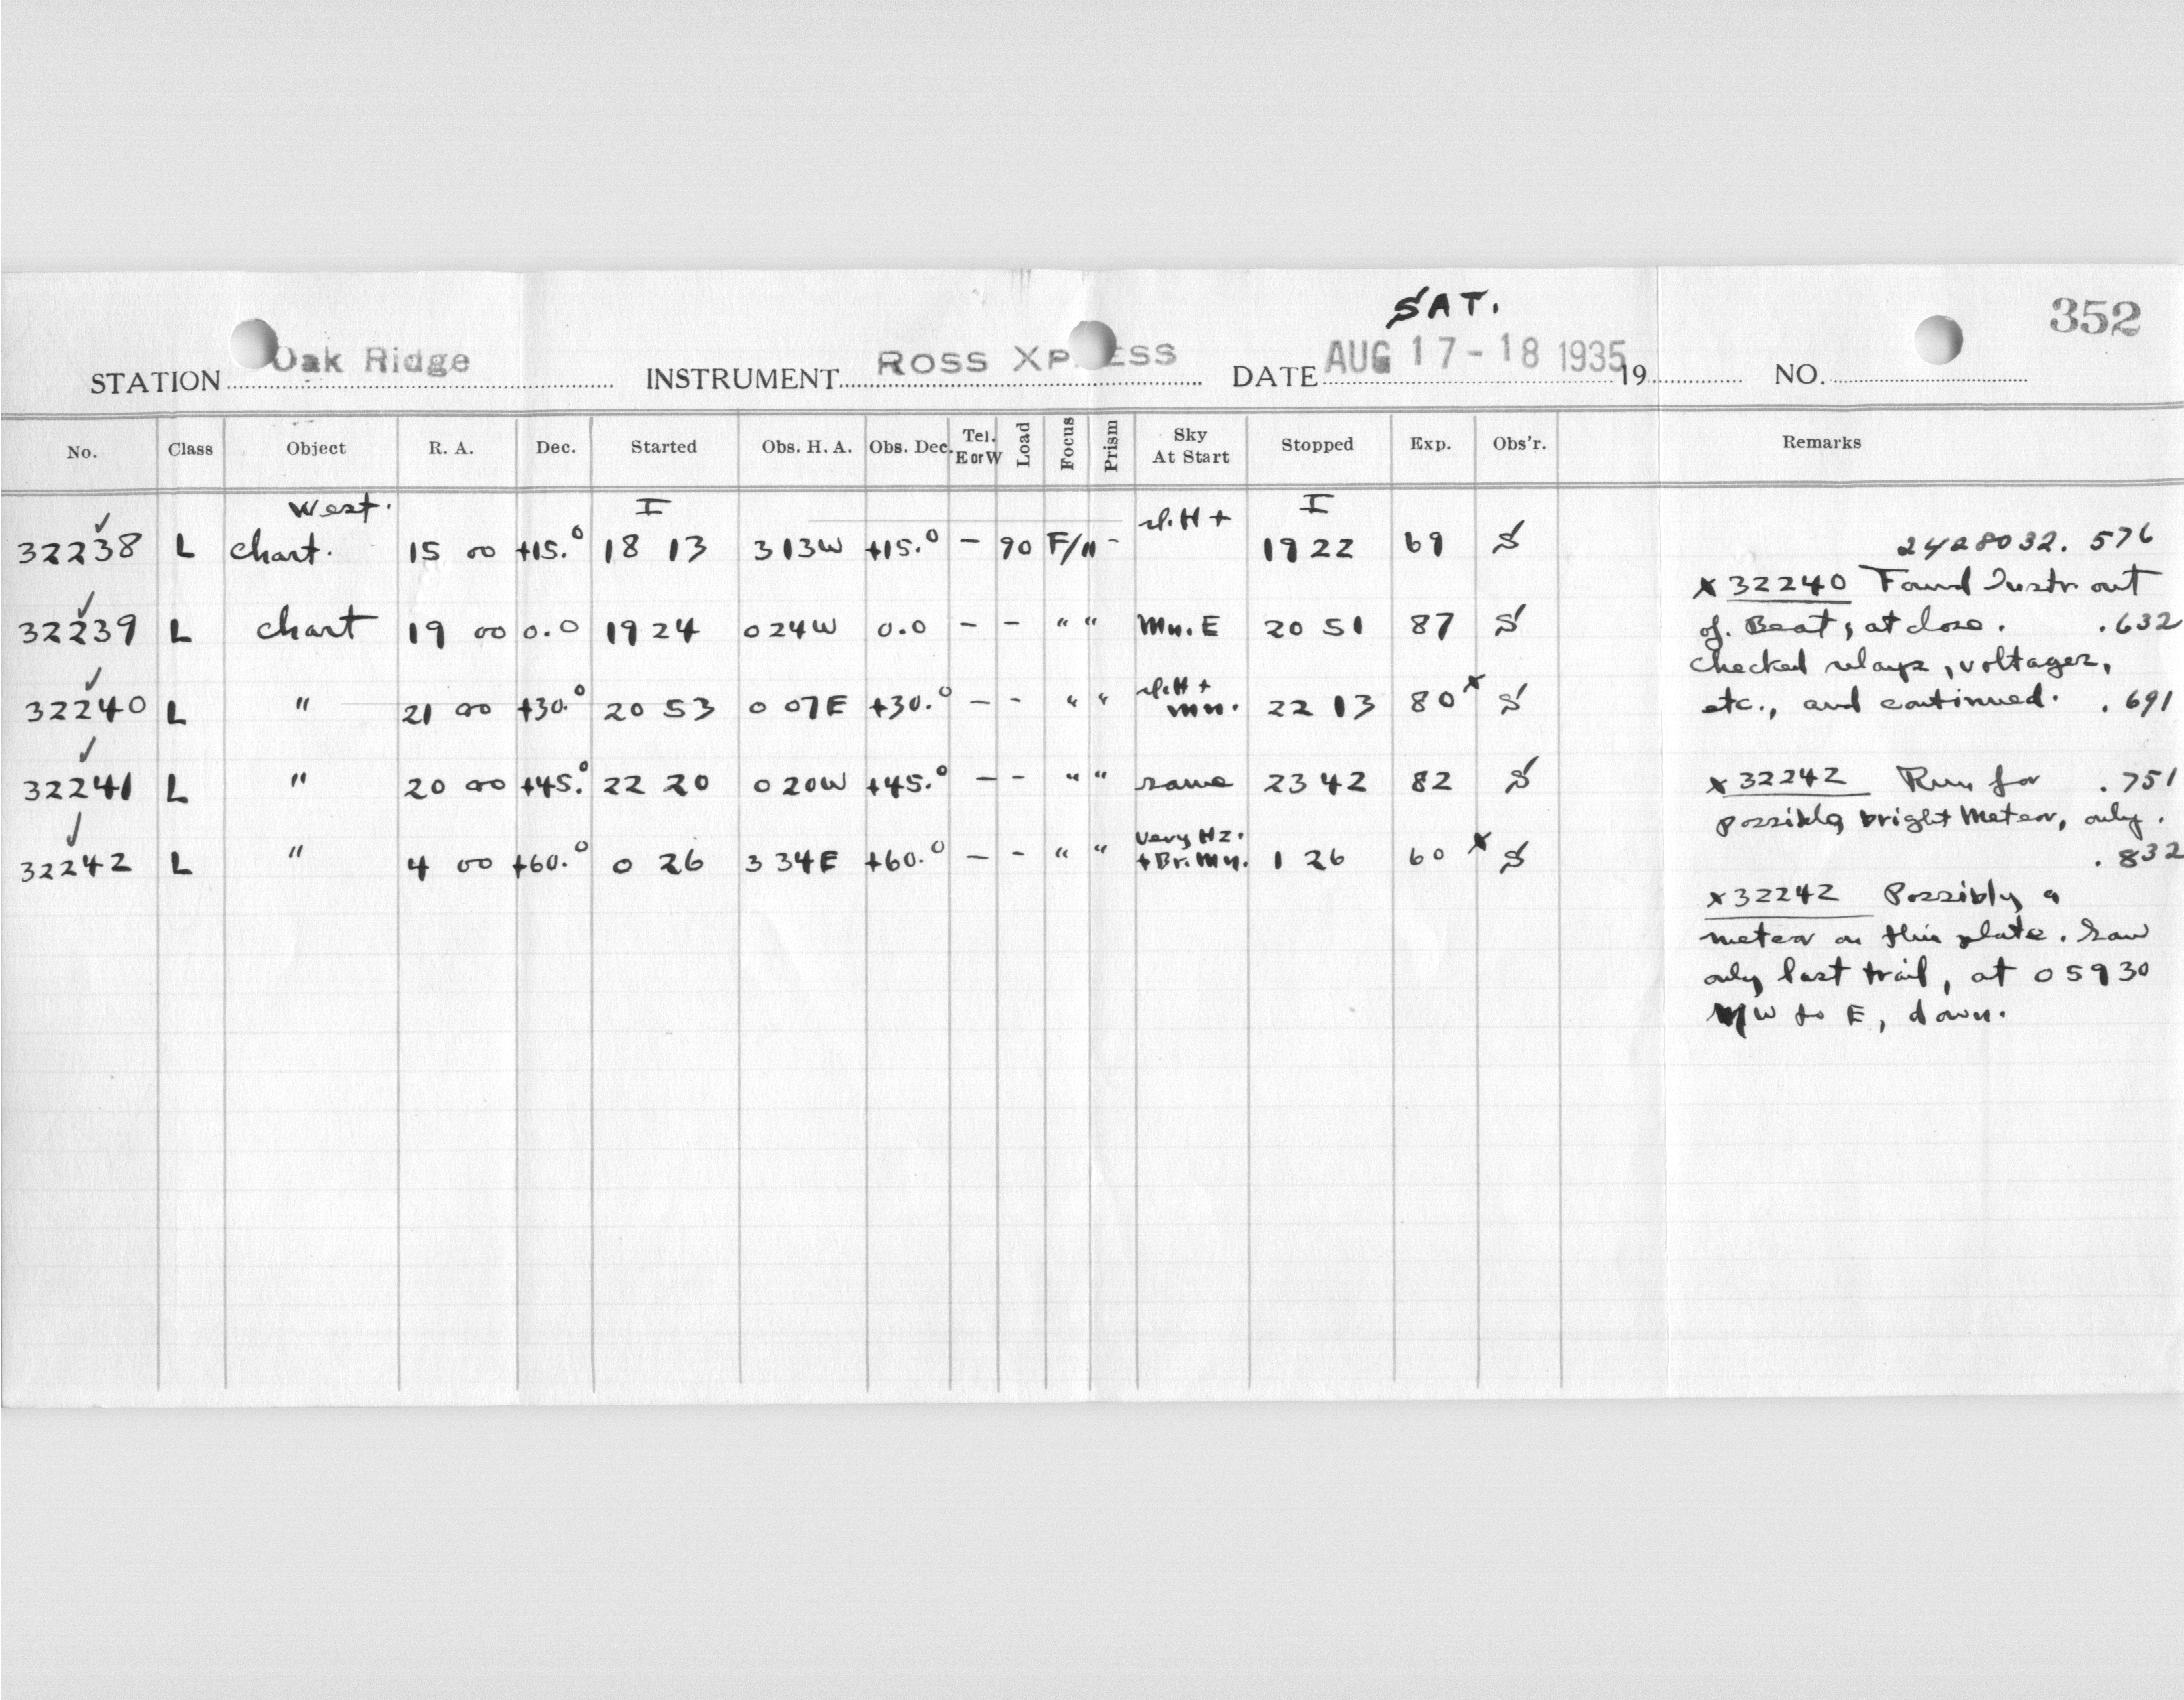 352
SAT.
STATION Oak Ridge INSTRUMENT ROSS XP ESS DATE AUG 17-18 1935 19 NO.
No. Class Object R. A. Dec. Started Obs. H. A. Obs. Dec. Tel. E or W Load Focus Prism Sky At Start Stopped Exp. Obs'r. Remarks
West. I I
32238 L chart. 15 00 +15.° 18 13 3 13W +15.° - 90 F/11 - sl. H + 19 22 69 S 2428032. 576
32239 L chart 19 00 0.0 19 24 0 24W 0.0 - - " " Mn. E 20 51 87 S
32240 L " 21 00 +30.° 20 53 0 07E +30.° - - " " sl. H + mn. 22 13 80 x S
32241 L " 20 00 +45.° 22 20 0 20W +45.° - - " " same 23 42 82 S
32242 L " 4 00 +60.° 0 26 3 34E +60.° - - " " Very Hz. + Br. Mn. 1 26 60 x S
x 32240 Found Instr. out
of Beat, at close. .632
checked relays, voltages,
etc., and continued. .691
x 32242 Run for .751
possibly bright Meteor, only.
.832
x 32242 Possibly a
meteor on this plate. Saw
only last trail, at 0 59 30
W to E, down.